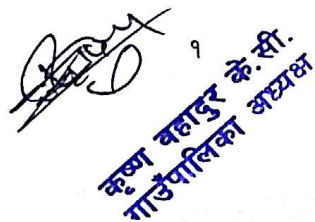 १
कृष्ण बहादुर के.सी.
गाउँपालिका अध्यक्ष